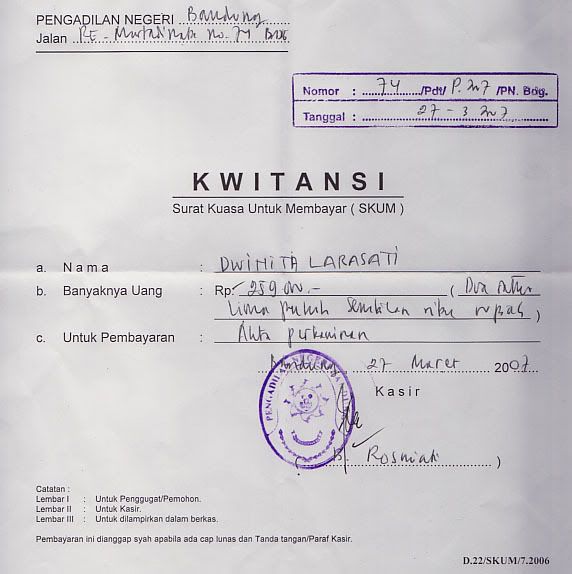 PENGADILAN NEGERI Bandung
Jalan RE. Martadinata no. 74 Bdg
Nomor : 74 /Pdt/ P. 2007 /PN. Bdg.
Tanggal : 27 - 3 2007
KWITANSI
Surat Kuasa Untuk Membayar ( SKUM )
a. Nama : DWINITA LARASATI
b. Banyaknya Uang : Rp. 259.000.- ( Dua ratus
lima puluh sembilan ribu rupiah )
c. Untuk Pembayaran : Akta perkawinan
Bandung, 27 Maret 2007
Kasir
PENGADILAN NEGERI BANDUNG
( Rosniati )
Catatan :
Lembar I : Untuk Penggugat/Pemohon.
Lembar II : Untuk Kasir.
Lembar III : Untuk dilampirkan dalam berkas.
Pembayaran ini dianggap syah apabila ada cap lunas dan Tanda tangan/Paraf Kasir.
D.22/SKUM/7.2006